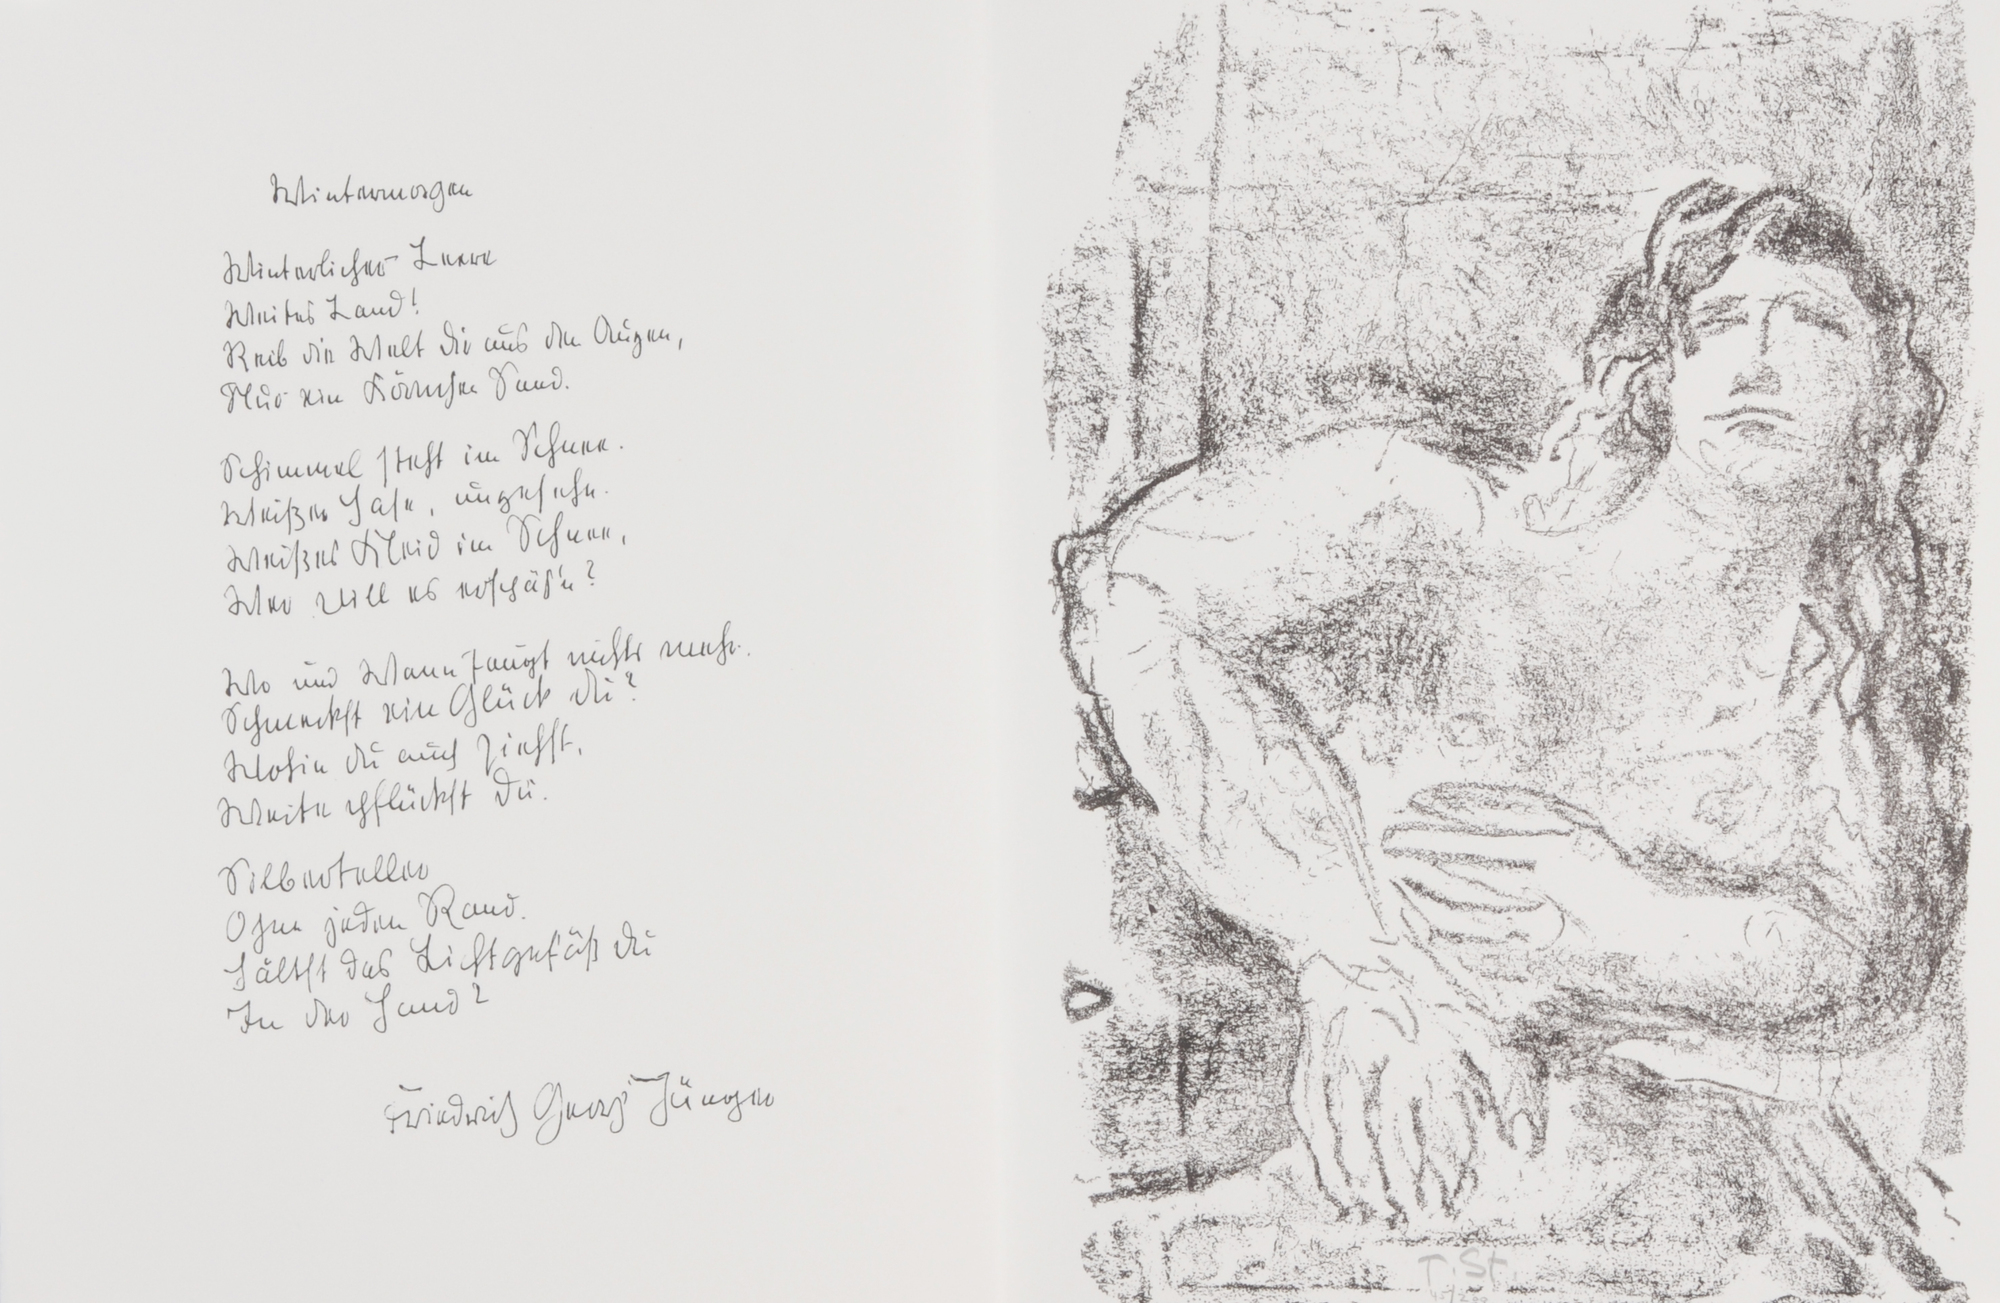 Wintermorgen
Winterlicher Leere
Weites Land!
Reib die Welt dir aus den Augen,
Nur ein Körnchen Sand.
Schimmel steht im Schnee.
Weißer Hase, ungesehn.
Weißes Kleid im Schnee,
Wer will es erspäh'n?
Wo und Wann taugt nichts mehr.
Schmeckst ein Glück du?
Wohin du auch ziehst,
Weite pflückst du.
Silberteller
Ohne jeden Rand.
Hältst das Lichtgefäß du
In der Hand?
Friedrich Georg Jünger
T. St.